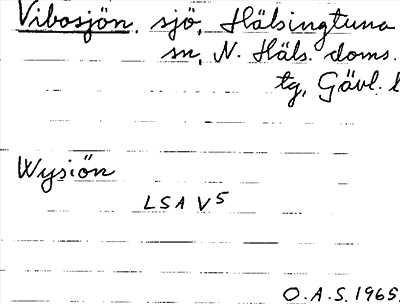 Vibosjön, sjö, Hälsingtuna
sn, N. Häls. doms.
tg, Gävl. l
Wysiön
LSA V5
O.A.S. 1965.